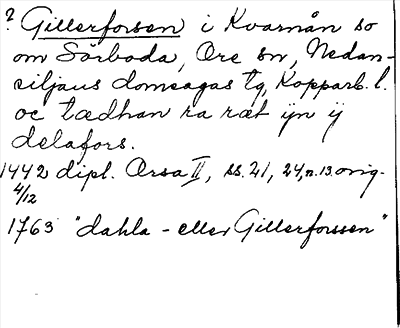 ? Gillerforsen i Kvarnån so
om Sörboda, Ore sn, Nedan-
siljans domsagas tg, Kopparb. l.
oc tædhan ra ræt yn ÿ
delafors.
1442 dipl. Orsa II, ss. 21, 24, n. 13. orig.
4/12
1763 "dahla - eller Gillerforssen"